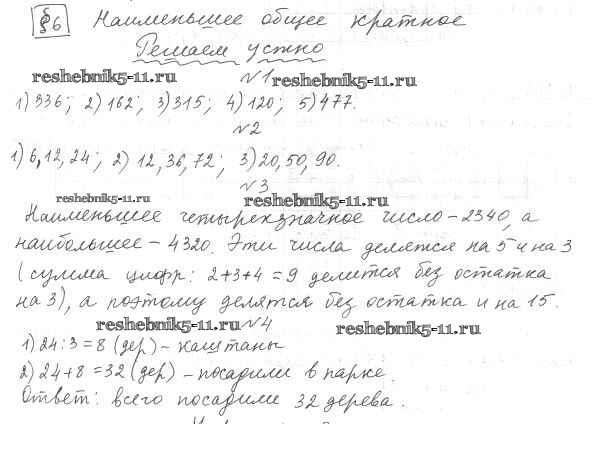 §6 Наименьшее общее кратное
Решаем устно
reshebnik5-11.ru №1 reshebnik5-11.ru
1) 336; 2) 162; 3) 315; 4) 120; 5) 477.
№2
1) 6, 12, 24; 2) 12, 36, 72; 3) 20, 50, 90.
№3
reshebnik5-11.ru reshebnik5-11.ru
Наименьшее четырехзначное число - 2340, а
наибольшее - 4320. Эти числа делятся на 5 и на 3
(сумма цифр: 2+3+4=9 делится без остатка
на 3), а поэтому делятся без остатка и на 15.
reshebnik5-11.ru №4 reshebnik5-11.ru
1) 24:3=8 (дер) - каштаны
2) 24+8=32 (дер) - посадили в парке.
Ответ: всего посадили 32 дерева.